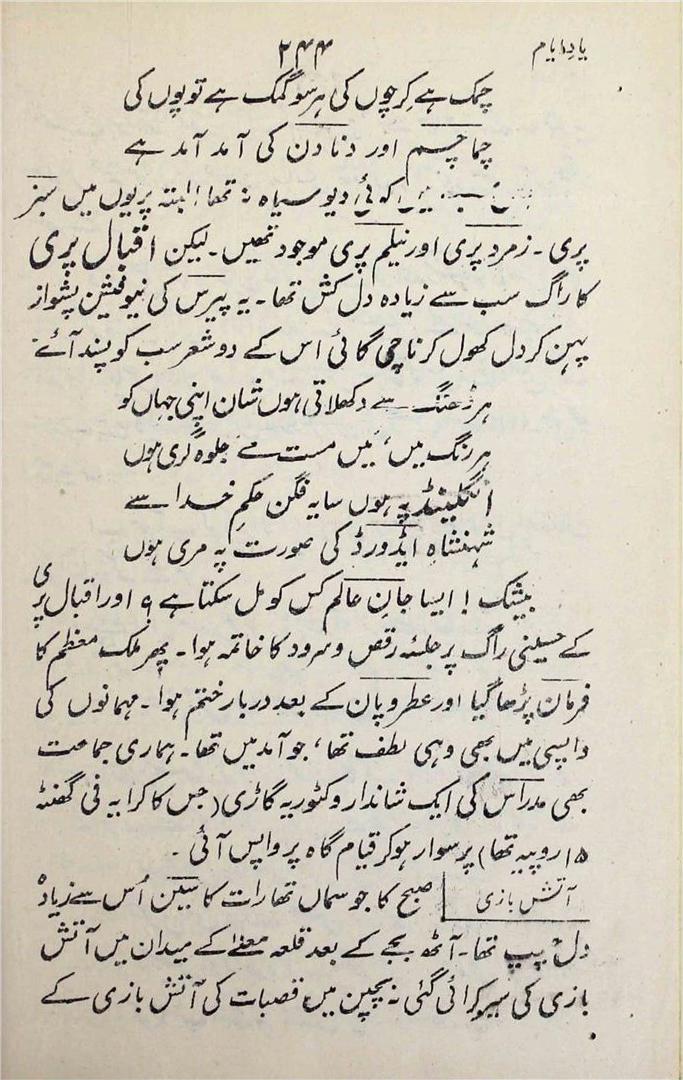 یادِ ایام
۲۴۴
چمک ہے کرچوں کی ہر سو گمک ہے توپوں کی
چماچم اور دنادن کی آمد آمد ہے
میں کوئی دیو سیاہ نہ تھا البتہ پریوں میں سبز
پری۔ زمرد پری اور نیلم پری موجود تھیں۔ لیکن اقبال پری
کا راگ سب سے زیادہ دل کش تھا۔ یہ پیرس کی نیو فیشن پشواز
پہن کر دل کھول کر ناچی گائی اس کے دو شعر سب کو پسند آئے۔
ہر ڈھنگ سے دکھلاتی ہوں شان اپنی جہاں کو
ہر رنگ میں، میں مست مے جلوہ گری ہوں
انگلینڈ پہ ہوں سایہ فگن حکمِ خدا سے
شہنشاہ ایڈورڈ کی صورت پہ مری ہوں
بیشک! ایسا جانِ عالم کس کو مل سکتا ہے؟ اور اقبال پری
کے حسینی راگ پر جلسۂ رقص و سرود کا خاتمہ ہوا۔ پھر ملک معظم کا
فرمان پڑھا گیا اور عطر و پان کے بعد دربار ختم ہوا۔ مہمانوں کی
واپسی میں بھی وہی لطف تھا، جو آمد میں تھا۔ ہماری جماعت
بھی مدراس کی ایک شاندار وکٹوریہ گاڑی (جس کا کرایہ فی گھنٹہ
۱۵ روپیہ تھا) پر سوار ہو کر قیام گاہ پر واپس آئی۔
آتش بازی صبح کا جو سماں تھا رات کا سین اُس سے زیادہ
دل چسپ تھا۔ آٹھ بجے کے بعد قلعہ معلےٰ کے میدان میں آتش
بازی کی سیر کرائی گئی۔ بچپن میں قصبات کی آتش بازی کے